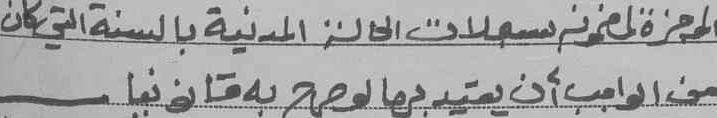 الموجزة لمضمونه بسجلات الحالة المدنية بالسنة التي كان
من الواجب أن يقيد بها لو صرح به قانونيا